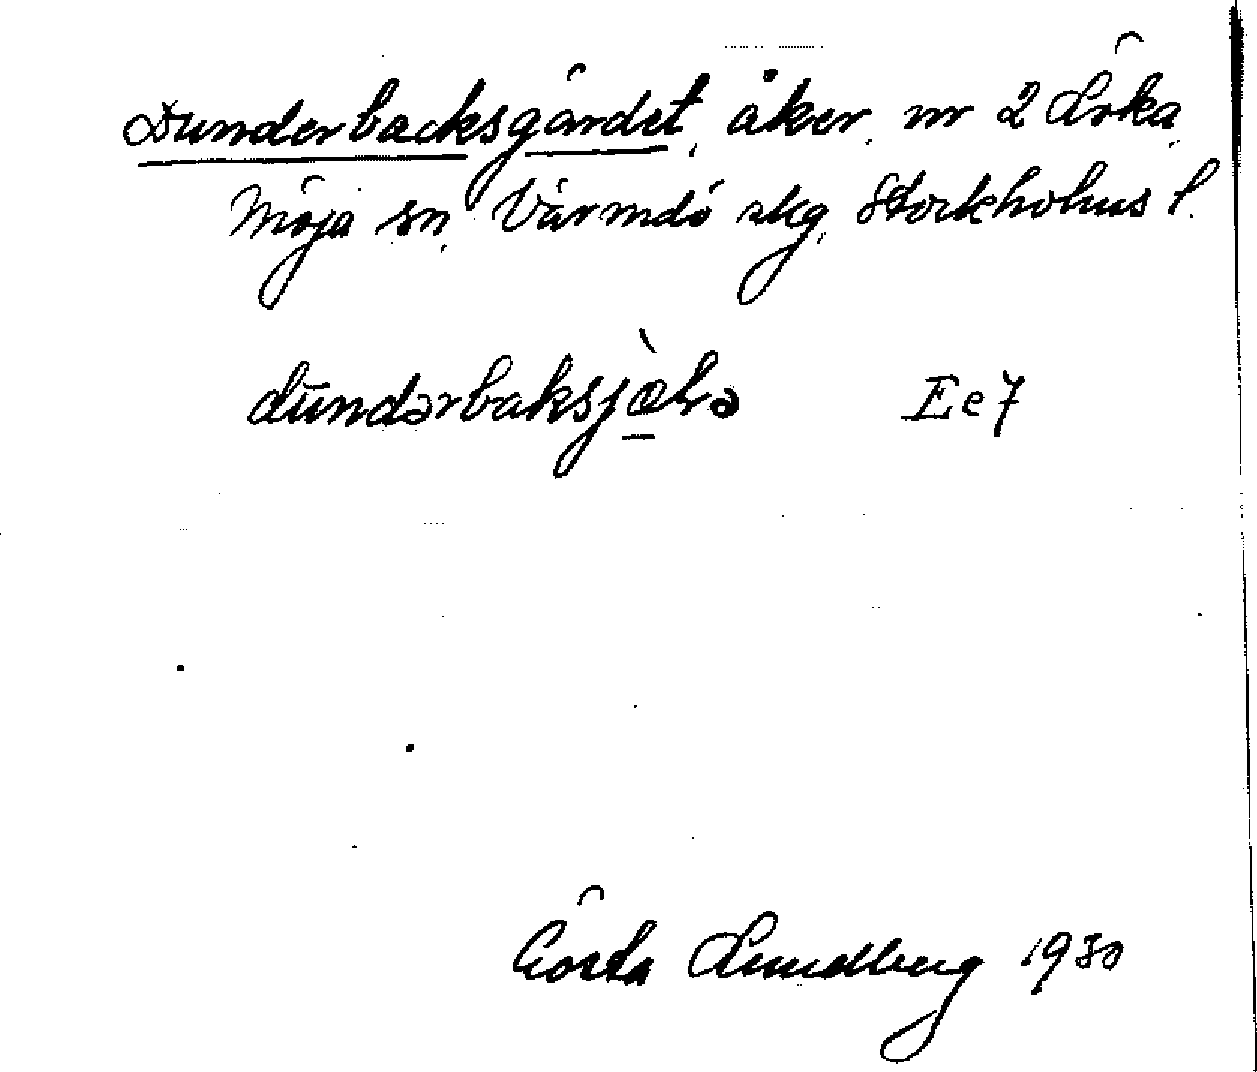 Dunderbacksgärdet, åker, nr 2 Lörka,
Möja sn, Värmdö skg, Stockholms l.
Ee7
Gösta Lundberg 1930